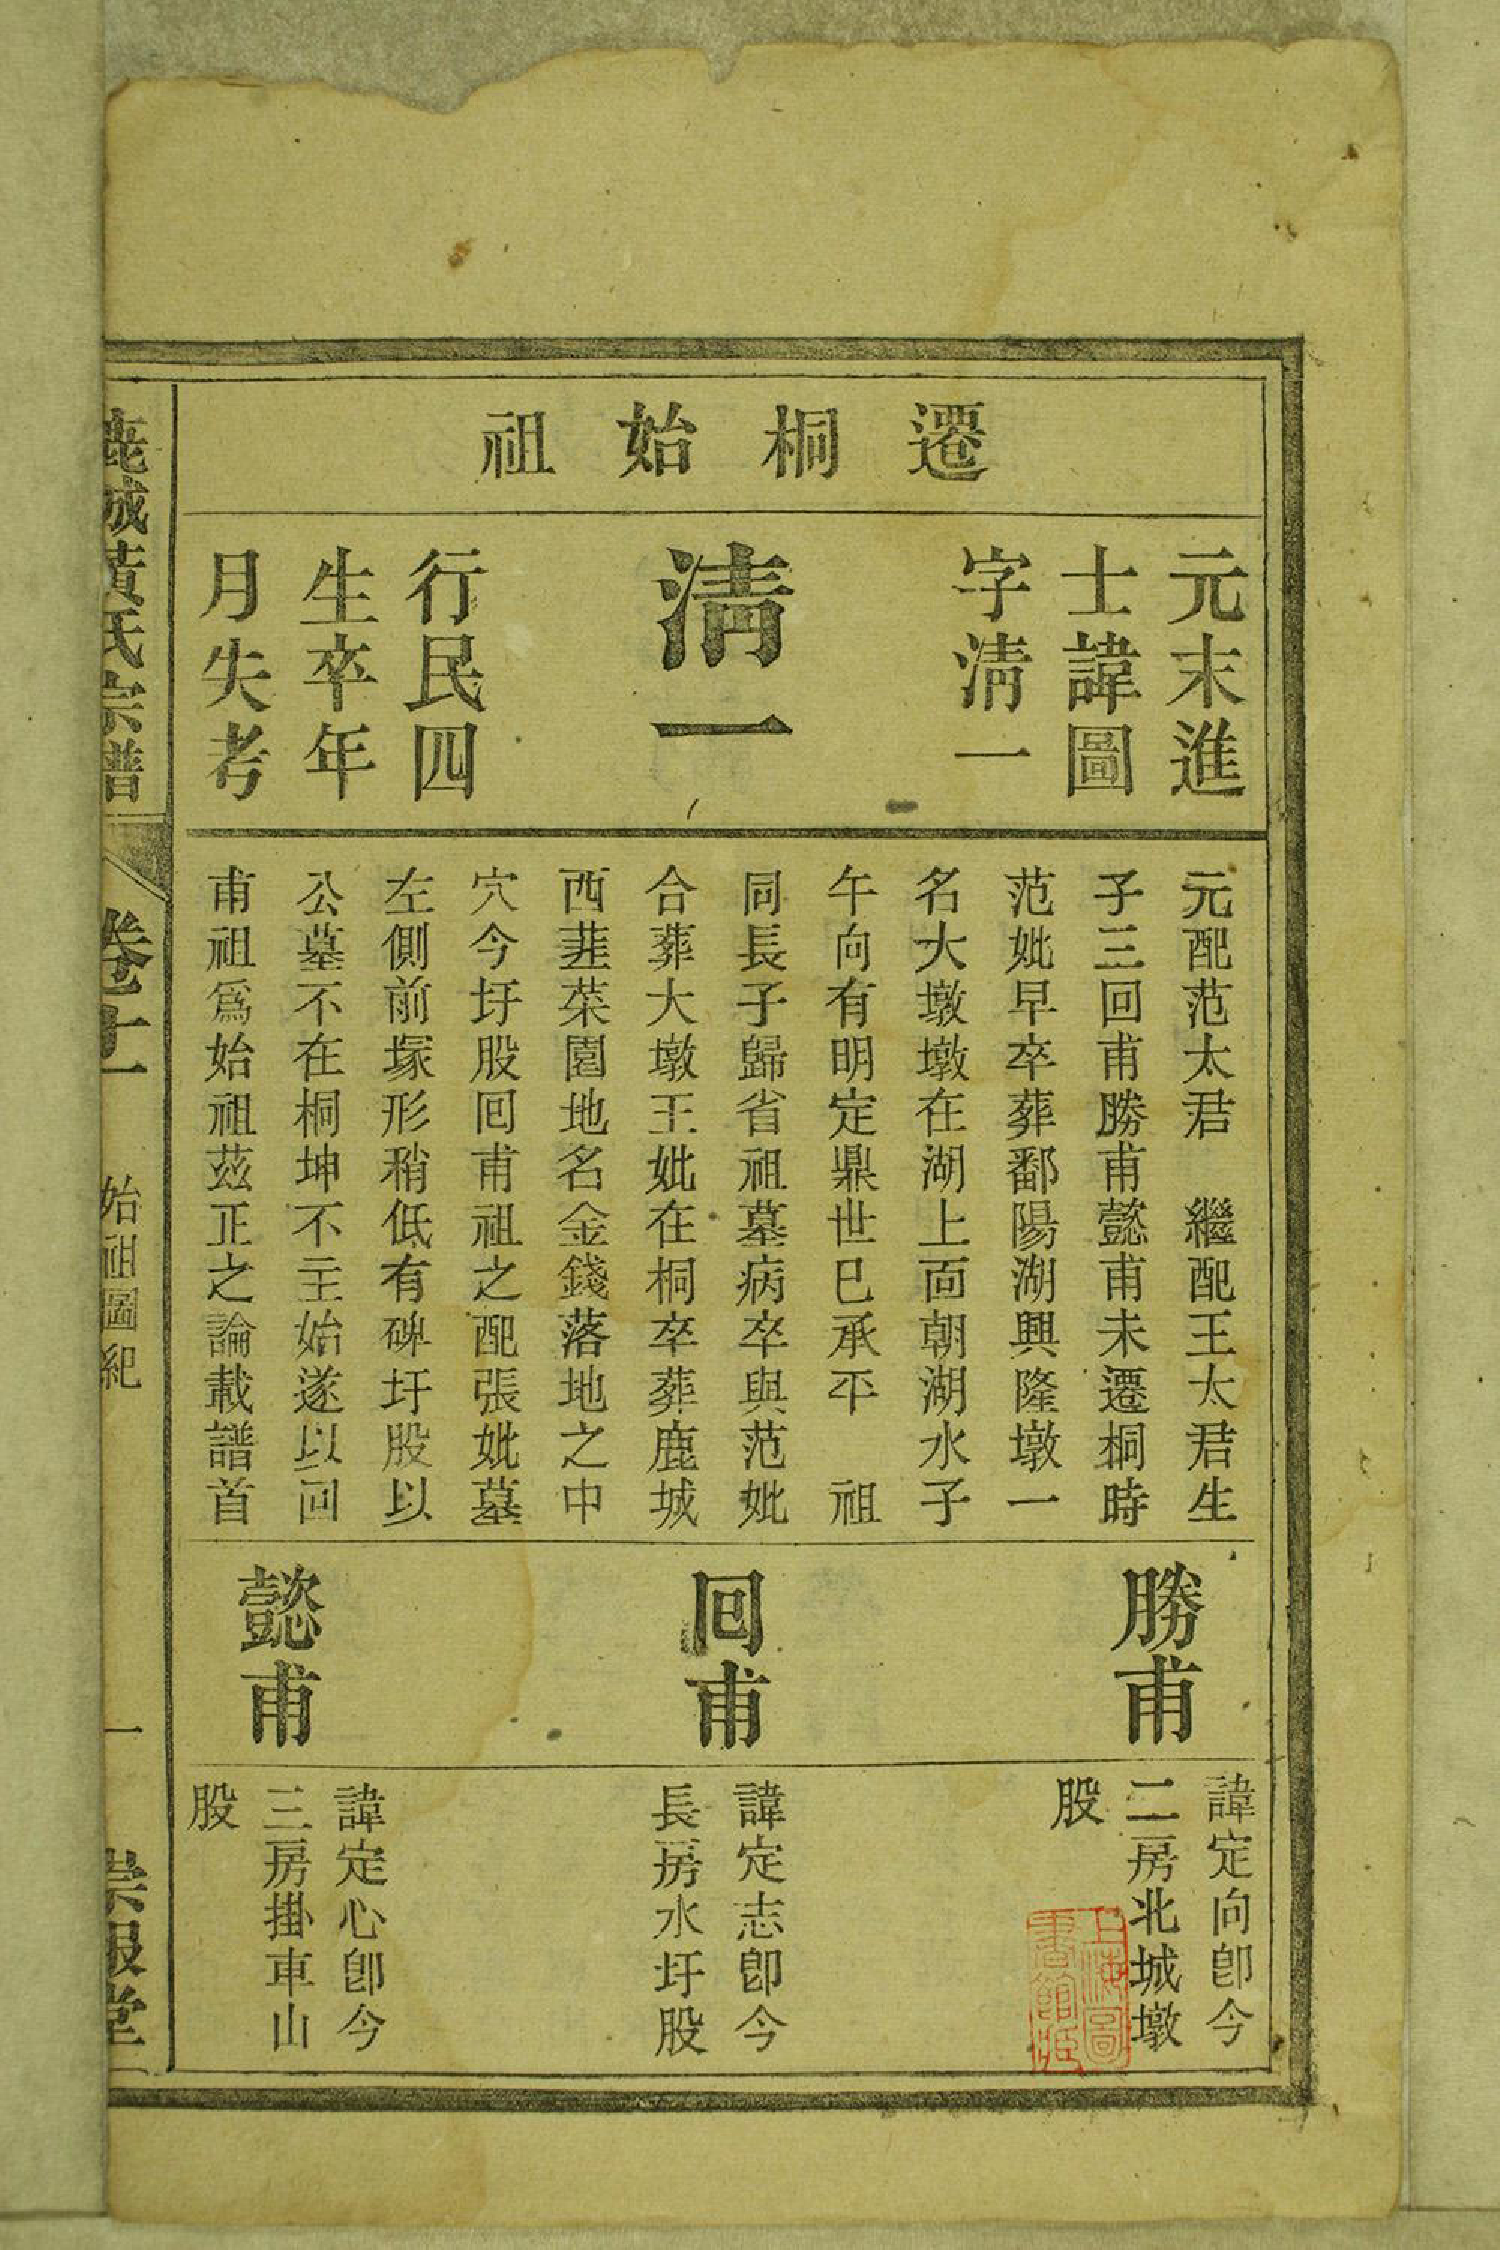 遷桐始祖
元末進
士諱圖
字淸一
淸一
行民四
生卒年
月失考
元配范太君　繼配王太君生
子三回甫勝甫懿甫未遷桐時
范妣早卒葬鄱陽湖興隆墩一
名大墩墩在湖上面朝湖水子
午向有明定鼎世已承平　祖
同長子歸省祖墓病卒與范妣
合葬大墩王妣在桐卒葬鹿城
西韮菜園地名金錢落地之中
穴今圩股回甫祖之配張妣墓
左側前塚形稍低有碑圩股以
公墓不在桐坤不主始遂以回
甫祖爲始祖茲正之論載譜首
勝甫
諱定向卽今
二房北城墩
股
回甫
諱定志卽今
長房水圩股
懿甫
諱定心卽今
三房掛車山
股
鹿城黃氏宗譜
卷十一
始祖圖紀
一
崇報堂
上海圖
書館藏